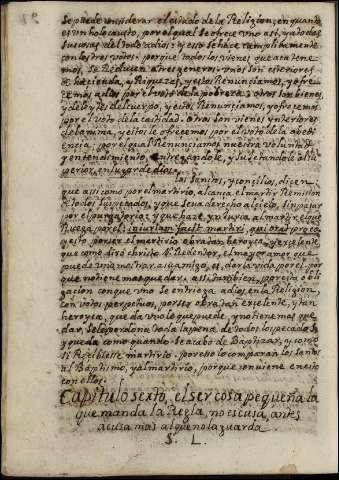 Se puede considerar el estado de la Religion; en quanto
es un holocausto, por el qual se ofrece uno assi, y a todas
sus cosas del todo a dios; y esto se hace cumplidamente
con los tres votos. porque todos los vienes que aca tene
mos, se Reducen a tres generos: unos son exteriores
de hacienda, y Riquezas, y estos Renunciamos, y ofre
cemos a dios por el voto de la pobreza: otros son vienes
y deleytes del cuerpo, y estos Renunciamos, y ofrecemos
por el voto de la castidad. otros son vienes ynteriores
del anima, y estos le ofrecemos por el voto de la obedi
encia: por el qual Renunciamos nuestra voluntad
y entendimiento, entregandole, y sujetandole al Su
perior, en lugar de dios.
los Santos, y concilios, dicen
que assi como por el martirio, alcanza el martir Remission
de todos sus pecados, y que se va derecho al cielo, sin passar
por el purgatorio: y que haze ynjuria al martir el que
Ruega por el: iniuriam facit martiri, qui orat pro eo
y esto por ser el martirio obra tan heroyca, y excelente,
que como dixo christo N. Redentor, el mayor amor que
puede uno mostrar a su amigo, es, dar la vida por el, por
que no tiene mas que dar. assi tambien, por esta obli
gacion con que uno se entrega a dios en la Religion,
con votos perpetuos, por ser obra tan excelente, y tan
heroyca, que da uno lo que puede, y no tiene mas que
dar, se le perdona toda la pena de todos los pecados
y queda como quando se acabo de Baptizar, y como
si Recibiesse martirio. por esso lo comparan los Santos
al Baptismo, y al martirio, porque conviene en esto
con ellos.
Capitulo sexto, el ser cosa pequeña la
que manda la Regla, no escusa, antes
acusa mas al que no la guarda.
S. L.